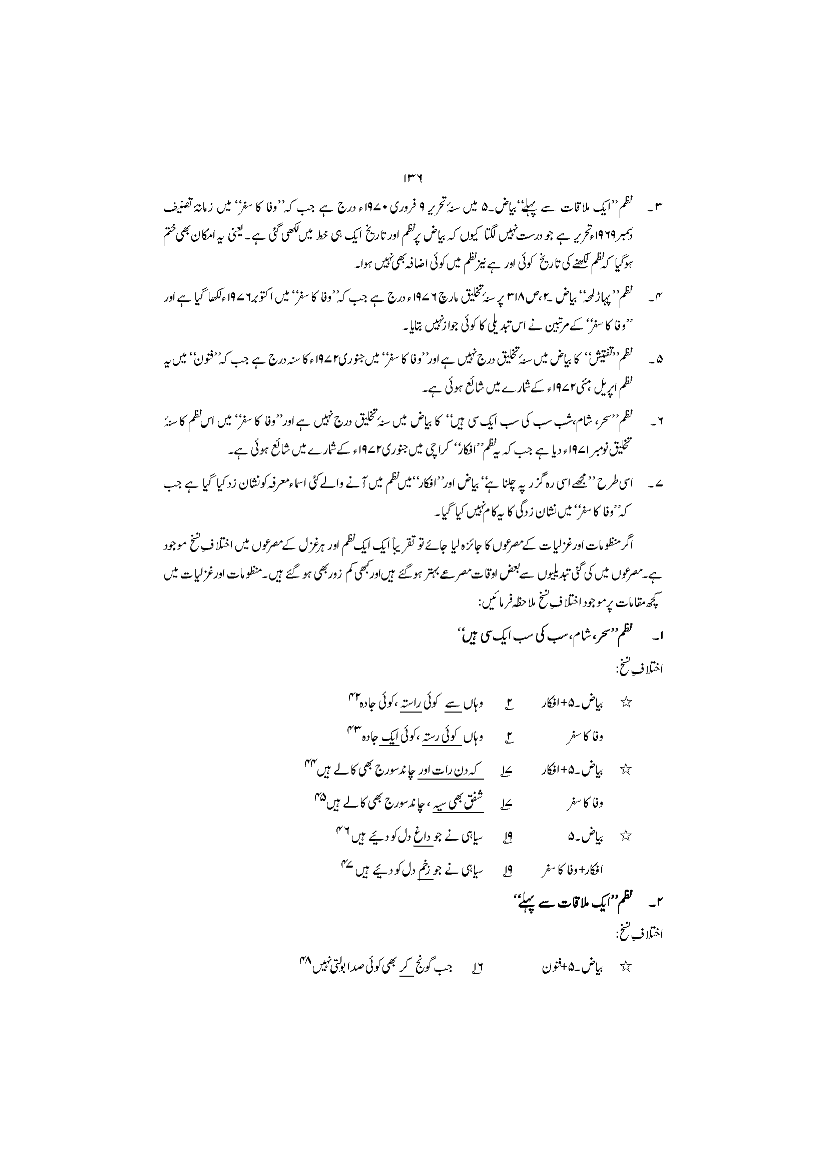 ۱۳۶
۳۔ نظم ’’ایک ملاقات سے پہلے‘‘ بیاض۔۵ میں سنۂ تحریر ۹ فروری ۱۹۷۰ء درج ہے جب کہ ’’وفا کا سفر‘‘ میں زمانۂ تصنیف
دسمبر ۱۹۶۹ء تحریر ہے جو درست نہیں لگتا کیوں کہ بیاض پر نظم اور تاریخ ایک ہی خط میں لکھی گئی ہے۔ یعنی یہ امکان بھی ختم
ہو گیا کہ نظم لکھنے کی تاریخ کوئی اور ہے نیز نظم میں کوئی اضافہ بھی نہیں ہوا۔
۴۔ نظم ’’پہاڑ لمحہ‘‘ بیاض ۔۲، ص ۳۱۸ پر سنۂ تخلیق مارچ ۱۹۷۶ء درج ہے جب کہ ’’وفا کا سفر‘‘ میں اکتوبر ۱۹۷۶ء لکھا گیا ہے اور
’’وفا کا سفر‘‘ کے مرتبین نے اس تبدیلی کا کوئی جواز نہیں بتایا۔
۵۔ نظم ’’تفتیش‘‘ کا بیاض میں سنۂ تخلیق درج نہیں ہے اور ’’وفا کا سفر‘‘ میں جنوری ۱۹۷۲ء کا سنہ درج ہے جب کہ ’’فنون‘‘ میں یہ
نظم اپریل، مئی ۱۹۷۲ء کے شمارے میں شائع ہوئی ہے۔
۶۔ نظم ’’سحر، شام، شب سب کی سب ایک سی ہیں‘‘ کا بیاض میں سنۂ تخلیق درج نہیں ہے اور ’’وفا کا سفر‘‘ میں اس نظم کا سنۂ
تخلیق نومبر ۱۹۷۱ء دیا ہے جب کہ یہ نظم ’’افکار‘‘ کراچی میں جنوری ۱۹۷۲ء کے شمارے میں شائع ہوئی ہے۔
۷۔ اسی طرح ’’مجھے اسی رہ گزر پہ چلنا ہے‘‘ بیاض اور ’’افکار‘‘ میں نظم میں آنے والے کئی اسماء معرفہ کو نشان زد کیا گیا ہے جب
کہ ’’وفا کا سفر‘‘ میں نشان زدگی کا یہ کام نہیں کیا گیا۔
اگر منظومات اور غزلیات کے مصرعوں کا جائزہ لیا جائے تو تقریباً ایک ایک نظم اور ہر غزل کے مصرعوں میں اختلافِ نسخ موجود
ہے۔ مصرعوں میں کی گئی تبدیلیوں سے بعض اوقات مصرعے بہتر ہو گئے ہیں اور کبھی کم زور بھی ہو گئے ہیں۔ منظومات اور غزلیات میں
کچھ مقامات پر موجود اختلافِ نسخ ملاحظہ فرمائیں:
۱۔ نظم ’’سحر، شام، سب کی سب ایک سی ہیں‘‘
اختلافِ نسخ:
☆ بیاض۔۵+افکار ۲ وہاں سے کوئی راستہ، کوئی جادہ ۴۲
وفا کا سفر ۲ وہاں کوئی رستہ، کوئی ایک جادہ ۴۳
☆ بیاض۔۵+افکار ۱۷ کہ دن رات اور چاند سورج بھی کالے ہیں ۴۴
وفا کا سفر ۱۷ شفق بھی سیہ، چاند سورج بھی کالے ہیں ۴۵
☆ بیاض۔۵ ۱۹ سیاہی نے جو داغ دل کو دیئے ہیں ۴۶
افکار+وفا کا سفر ۱۹ سیاہی نے جو زخم دل کو دیئے ہیں ۴۷
۲۔ نظم ’’ایک ملاقات سے پہلے‘‘
اختلافِ نسخ:
☆ بیاض۔۵+فنون ۱۶ جب گونج کر بھی کوئی صدا بولتی نہیں ۴۸